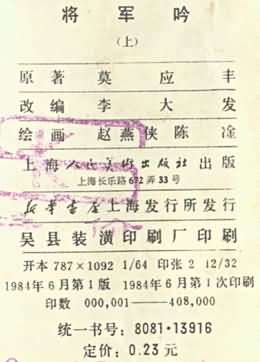 将军吟
（上）
原著 莫应丰
改编 李大发
绘画 赵燕侠 陈淦
上海人民美术出版社出版
上海长乐路672弄33号
新华书店上海发行所发行
吴县装潢印刷厂印刷
开本 787×1092 1/64 印张 2 12/32
1984年6月第1版 1984年6月第1次印刷
印数 000,001——408,000
统一书号：8081·13916
定价：0.23元